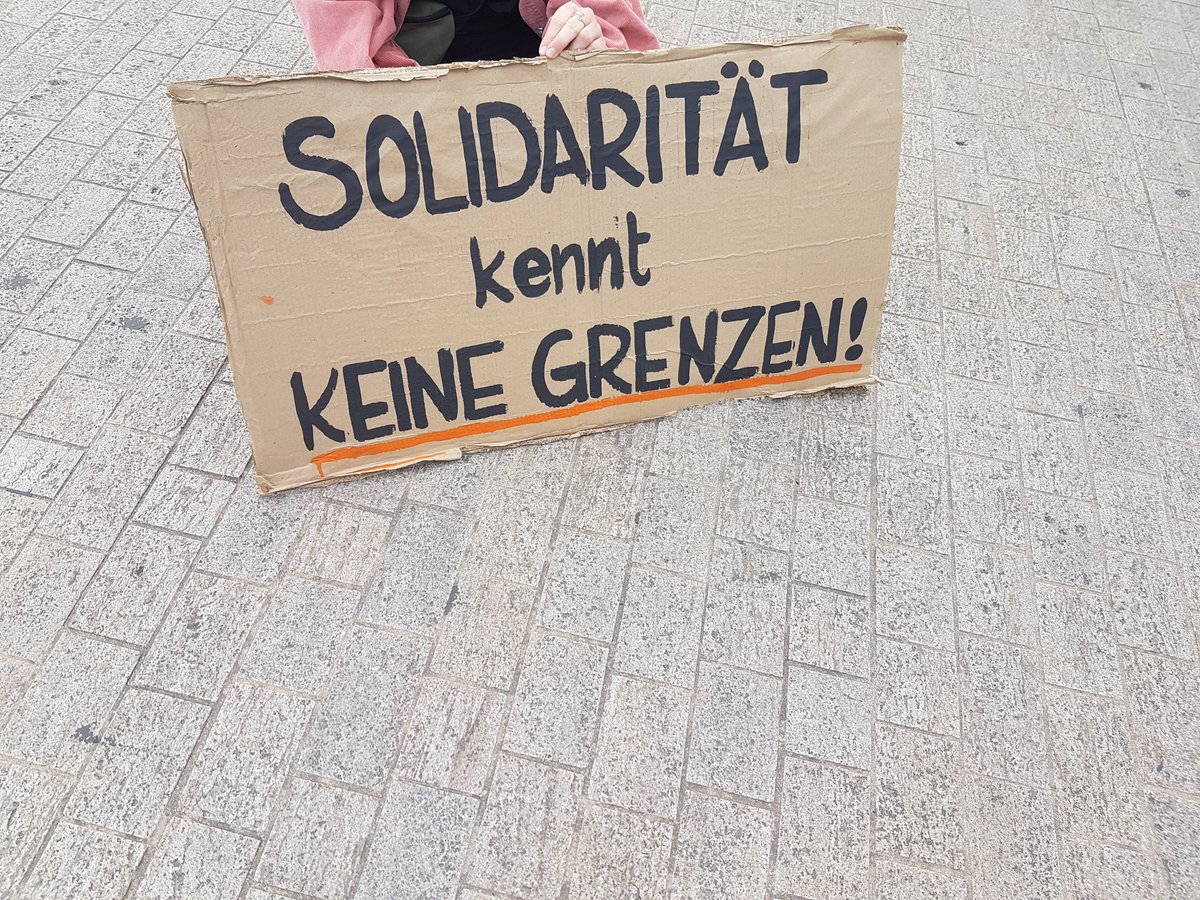 SOLIDARITÄT
kennt
KEINE GRENZEN!